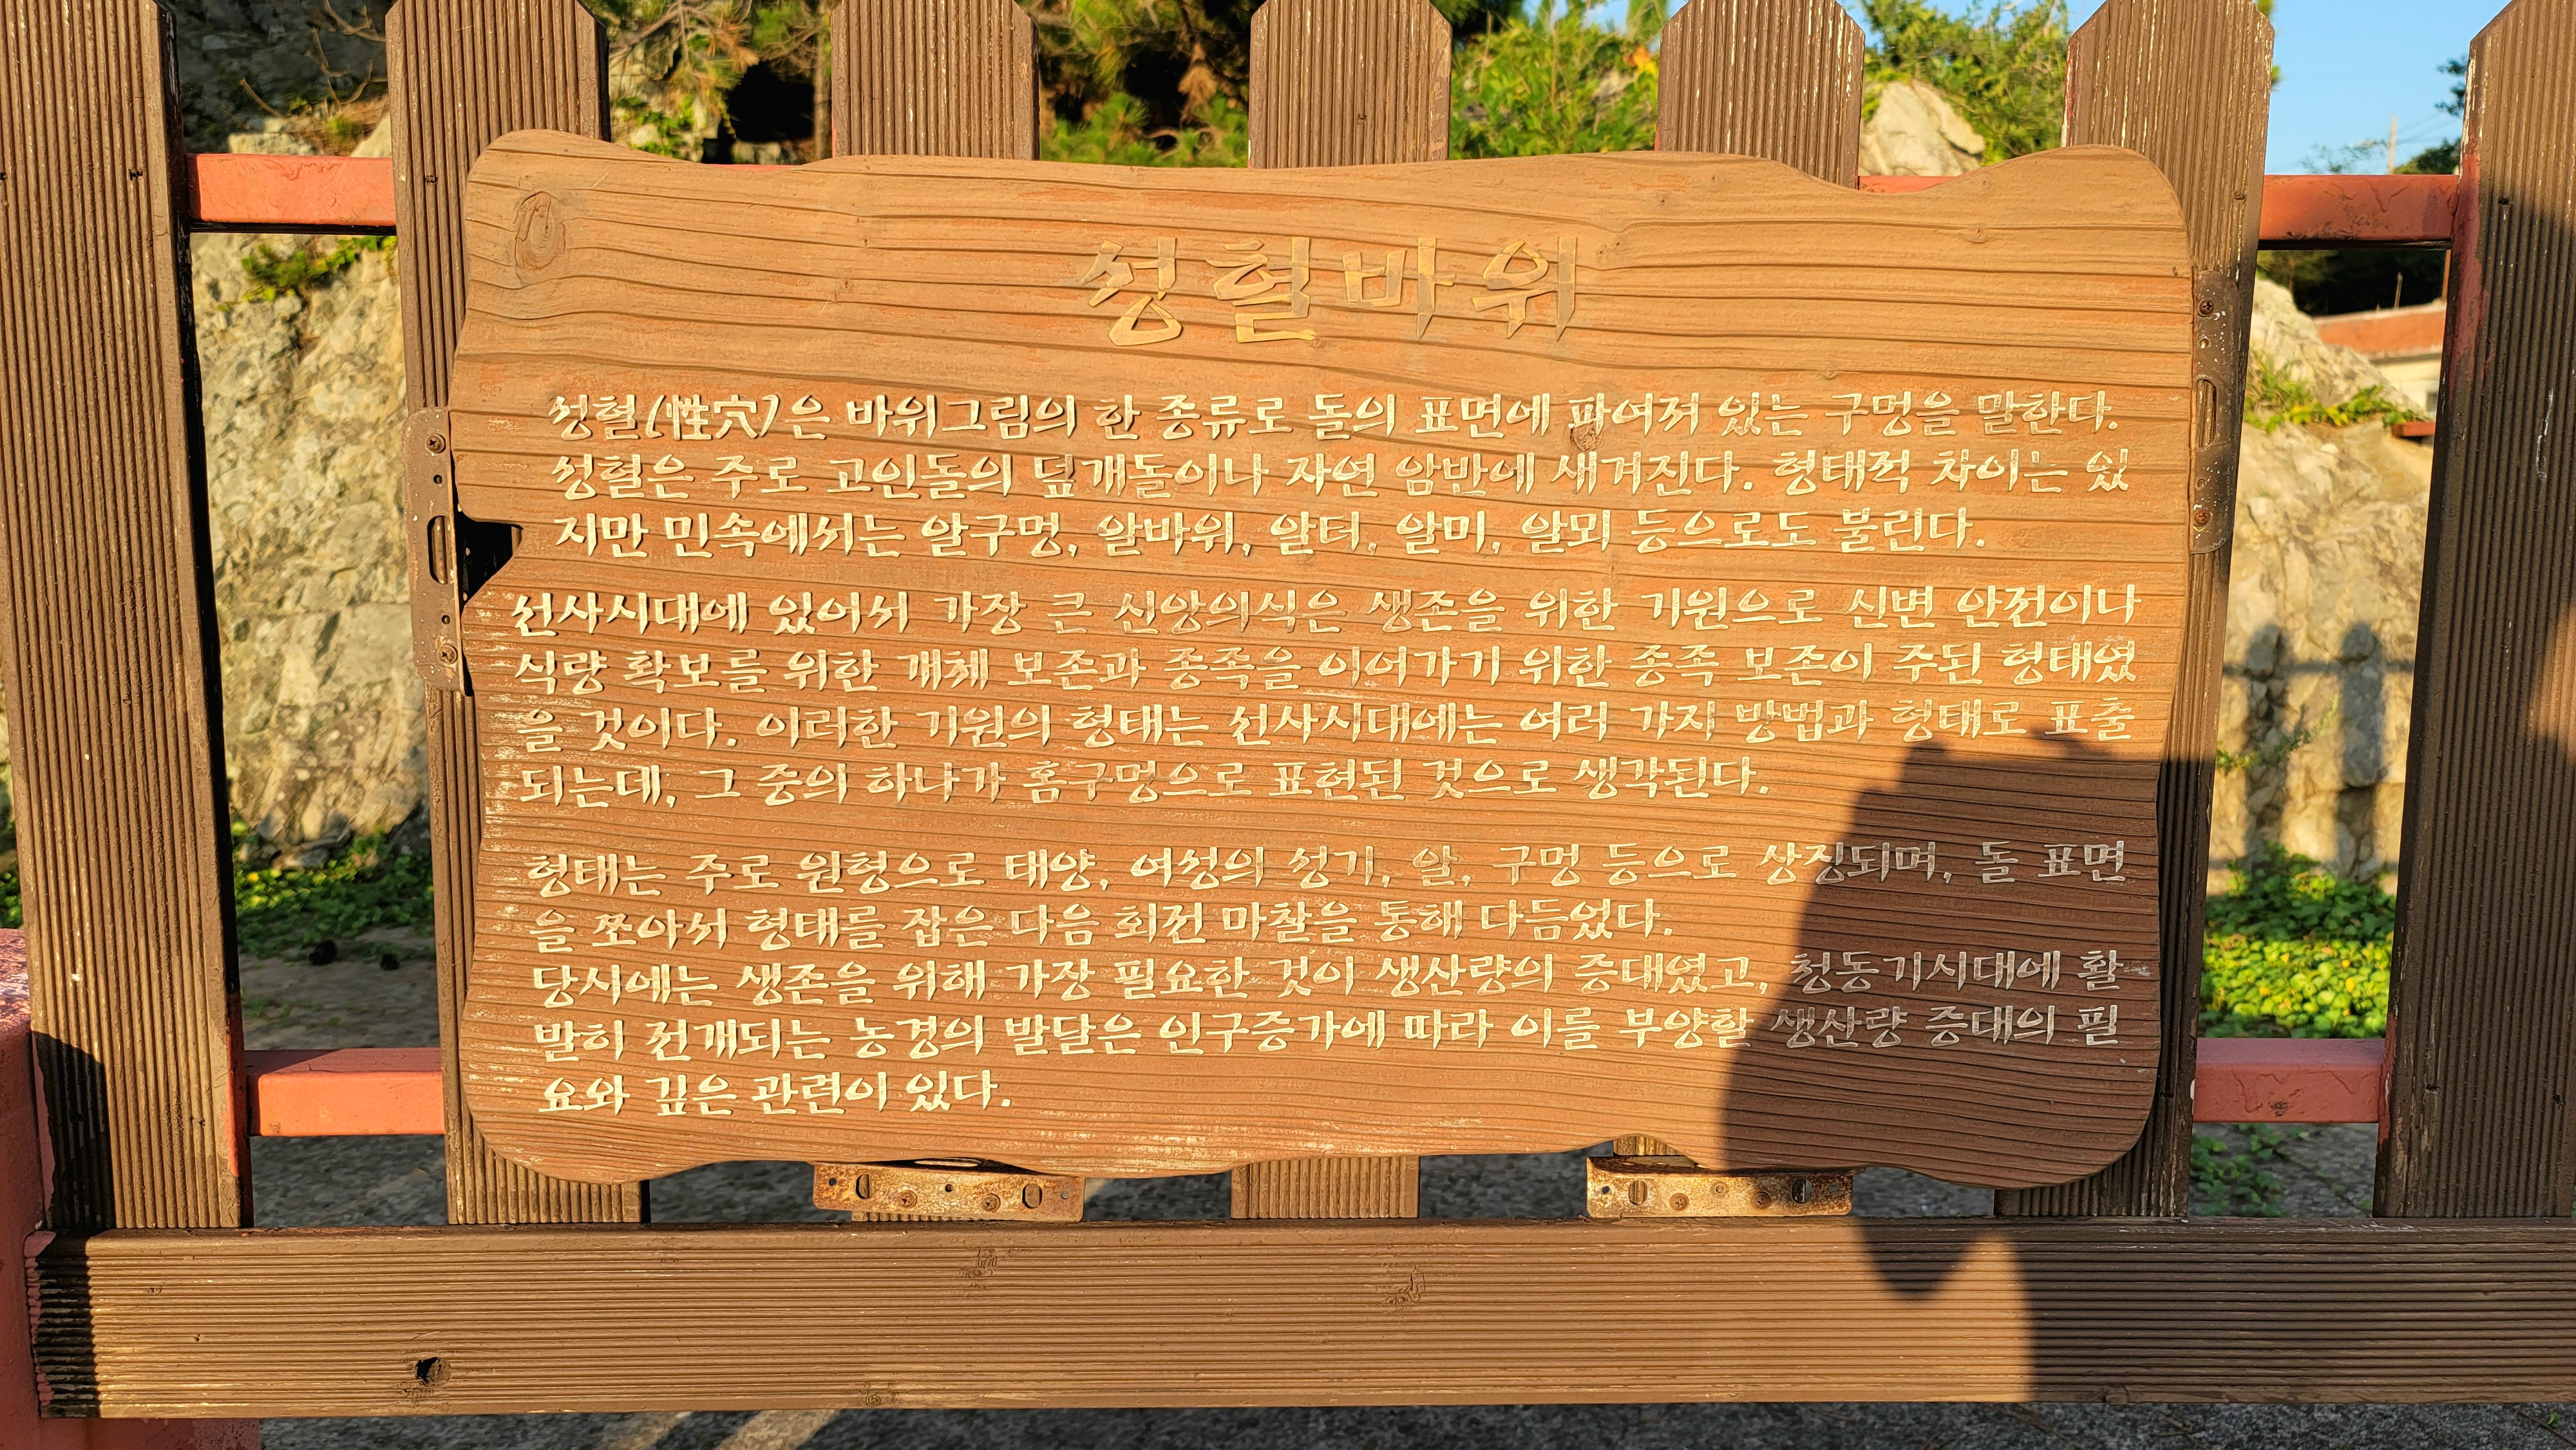 성혈바위
성혈(性穴)은 바위그림의 한 종류로 돌의 표면에 파여져 있는 구멍을 말한다.
성혈은 주로 고인돌의 덮개돌이나 자연 암반에 새겨진다. 형태적 차이는 있
지만 민속에서는 알구멍, 알바위, 알터, 알미, 알뫼 등으로도 불린다.
선사시대에 있어서 가장 큰 신앙의식은 생존을 위한 기원으로 신변 안전이나
식량 확보를 위한 개체 보존과 종족을 이어가기 위한 종족 보존이 주된 형태였
을 것이다. 이러한 기원의 형태는 선사시대에는 여러 가지 방법과 형태로 표출
되는데, 그 중의 하나가 홈구멍으로 표현된 것으로 생각된다.
형태는 주로 원형으로 태양, 여성의 성기, 알, 구멍 등으로 상징되며, 돌 표면
을 쪼아서 형태를 잡은 다음 회전 마찰을 통해 다듬었다.
당시에는 생존을 위해 가장 필요한 것이 생산량의 증대였고, 청동기시대에 활
발히 전개되는 농경의 발달은 인구증가에 따라 이를 부양할 생산량 증대의 필
요와 깊은 관련이 있다.